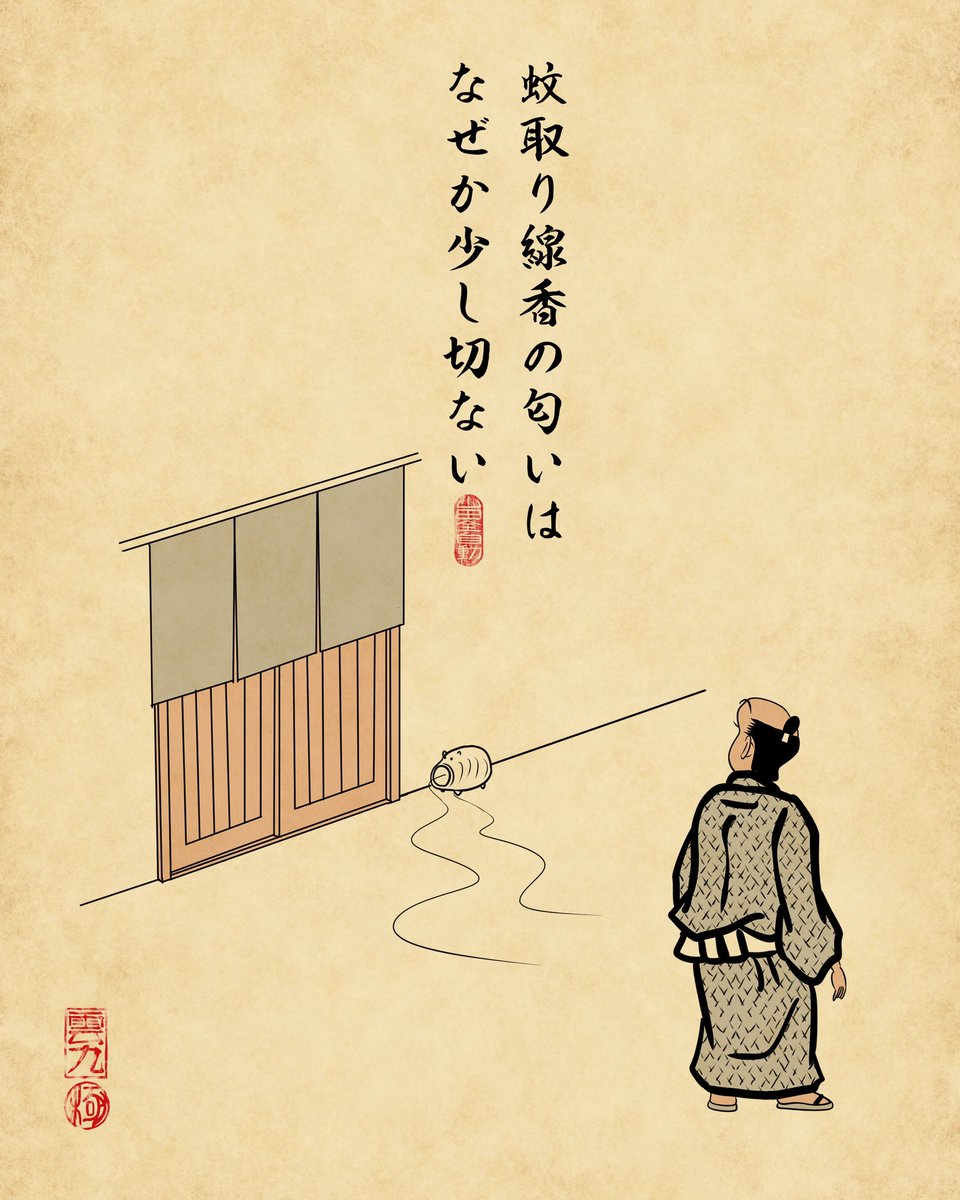 蚊取り線香の匂いは
なぜか少し切ない
雲九